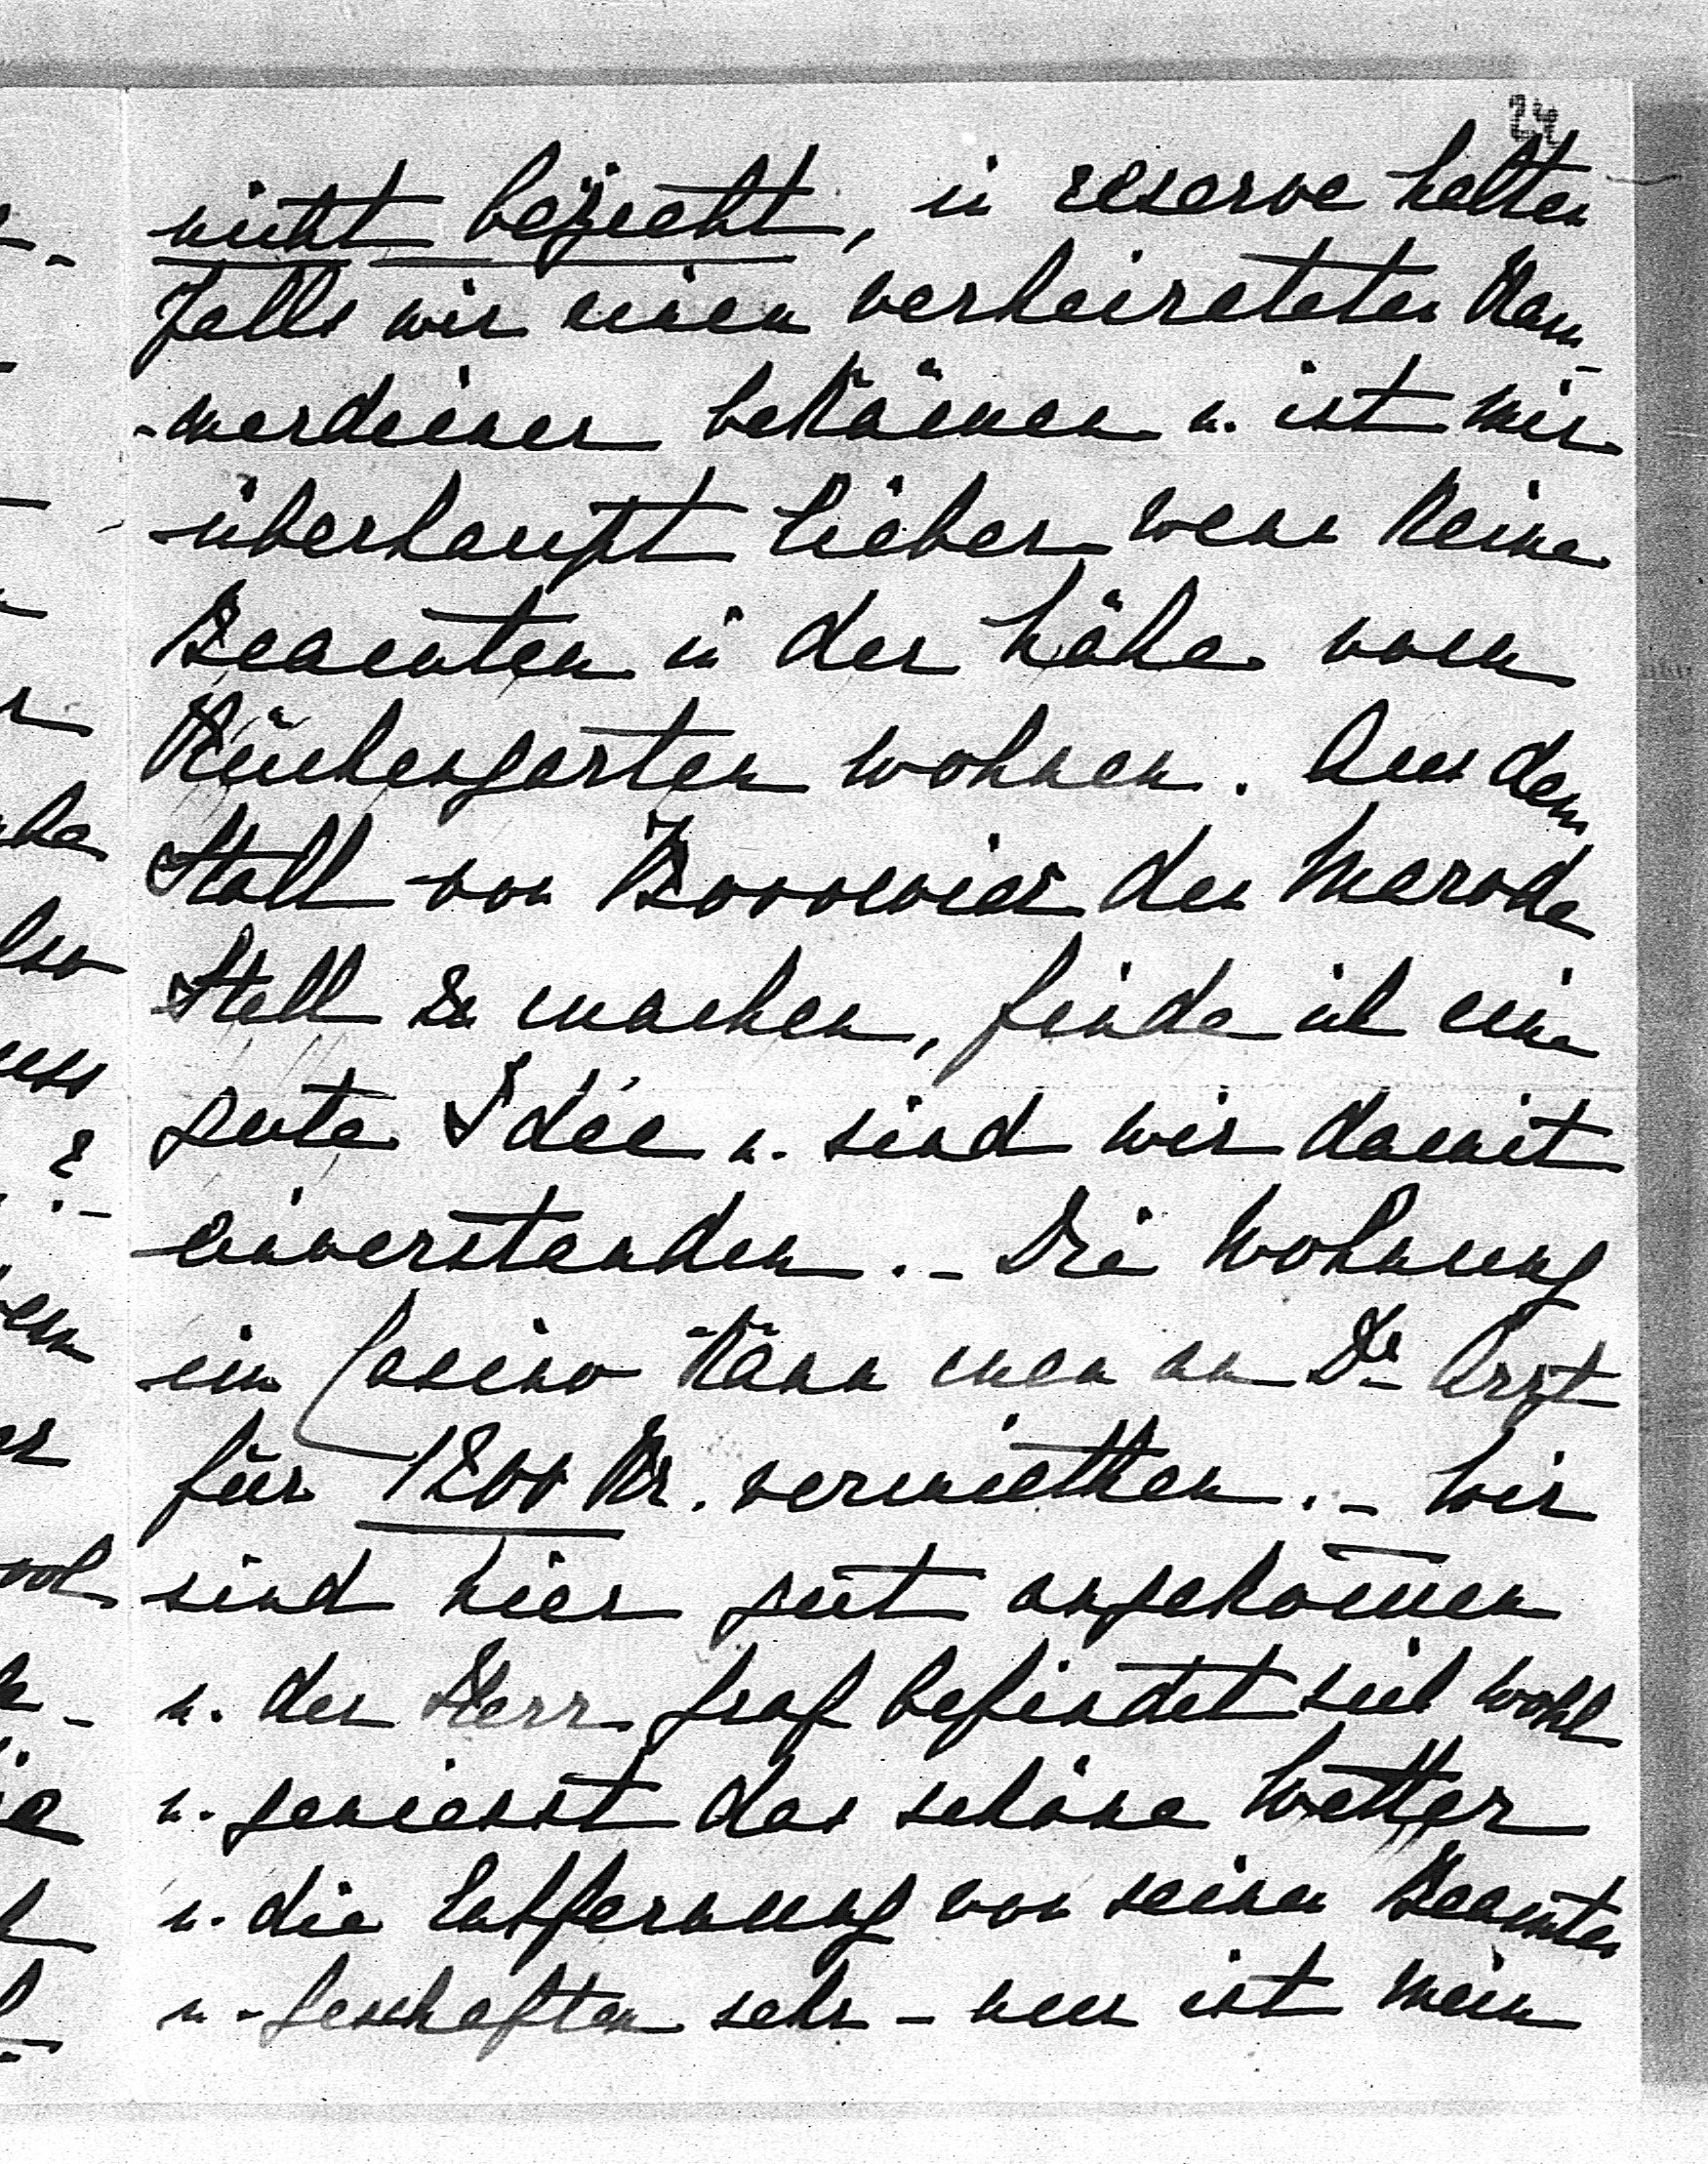 24
nicht bezieht, in reserve halten
falls wir einen verheirateten Kam-
-merdiener bekämen u. ist mir
überhaupt lieber wenn keine
Beamten in der Nähe vom
Küchengarten wohnen. Aus dem
Stall von den Marode
Stall zu machen, finde ich eine
gute Idée u. sind wir damit
einverstanden. - Die Wohnung
im Casino kann man an Dr Arzt
für 1200 Kr. vermiethen. - Wir
sind hier gut angekommen
u. der Herr Graf befindet sich wohl
u. geniesst das schöne Wetter
u. die Entfernung von seinen Beamten
u. Geschäften sehr - nun ist mein